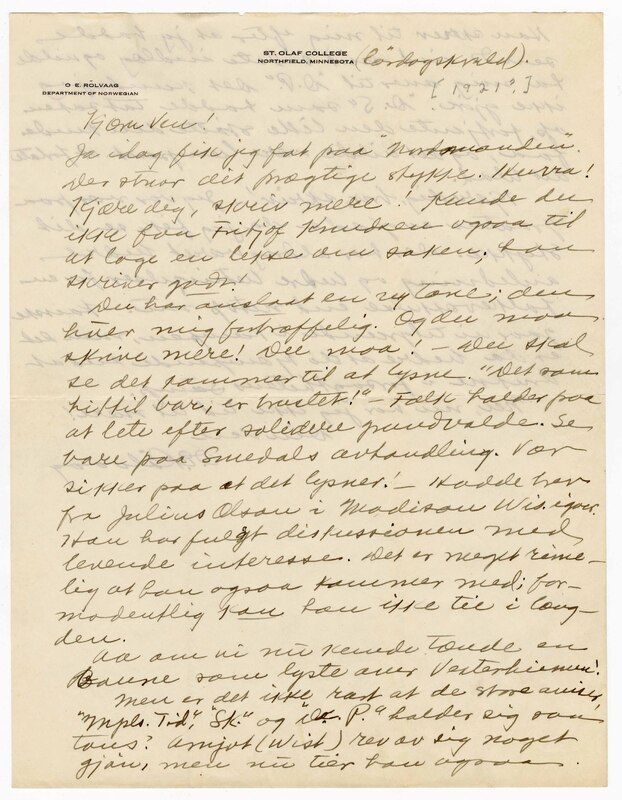 ST. OLAF COLLEGE
NORTHFIELD, MINNESOTA
(Lördagskveld).
O. E. ROLVAAG
DEPARTMENT OF NORWEGIAN
[1921?]
Kjære Ven!
Ja idag fik jeg fat paa "Nordmanden".
Der staar dit prægtige stykke. Hurra!
Kjære dig, skriv mere. Kunde du
ikke faa Fritjof Knudsen ogsaa til
at lage en lekse om saken; han
skriver godt!
Du har anslaat en ny tone; den
huer mig fortræffelig. Og du maa
skrive mere! Du maa! – Du skal
se det kommer til at lysne. "Det som
hittil bar, er brustet!" – Folk holder paa
at lete efter solidere grundvolde. Se
bare paa Smedals avhandling. Vær
sikker paa at det lysner! – Hadde brev
fra Julius Olson i Madison Wis. igaar.
Han har fulgt diskussionen med
levende interesse. Det er meget rime-
lig at han ogsaa kommer med; for-
modentlig kan han ikke tie i læng-
den.
Aa om vi nu kunde tænde en
Baune som lyste over Vesterheimen!
Men er det ikke rart at de store aviser,
"Mpls. Tid", "Sk." og "D. P." holder sig saa
taus? Arnljot (Wist) rev av sig noget
gjøn, men nu tier han ogsaa.